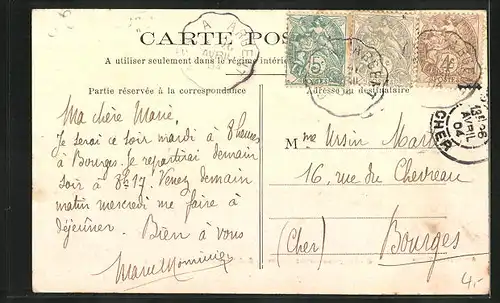 CARTE POS
A utiliser seulement dans le régime intérieur
Partie réservée à la correspondance
Adresse du destinataire
Ma chère Marie,
Je serai ce soir mardi à 8 heures
à Bourges. Je repartirai demain
soir à 8h17. Venez demain
matin mercredi me faire à
déjeuner. Bien à vous
Marcel
Mme Ursin
16, rue du Chevreau
(Cher) Bourges
5c
4c
AVRIL
04
CHER
4.-